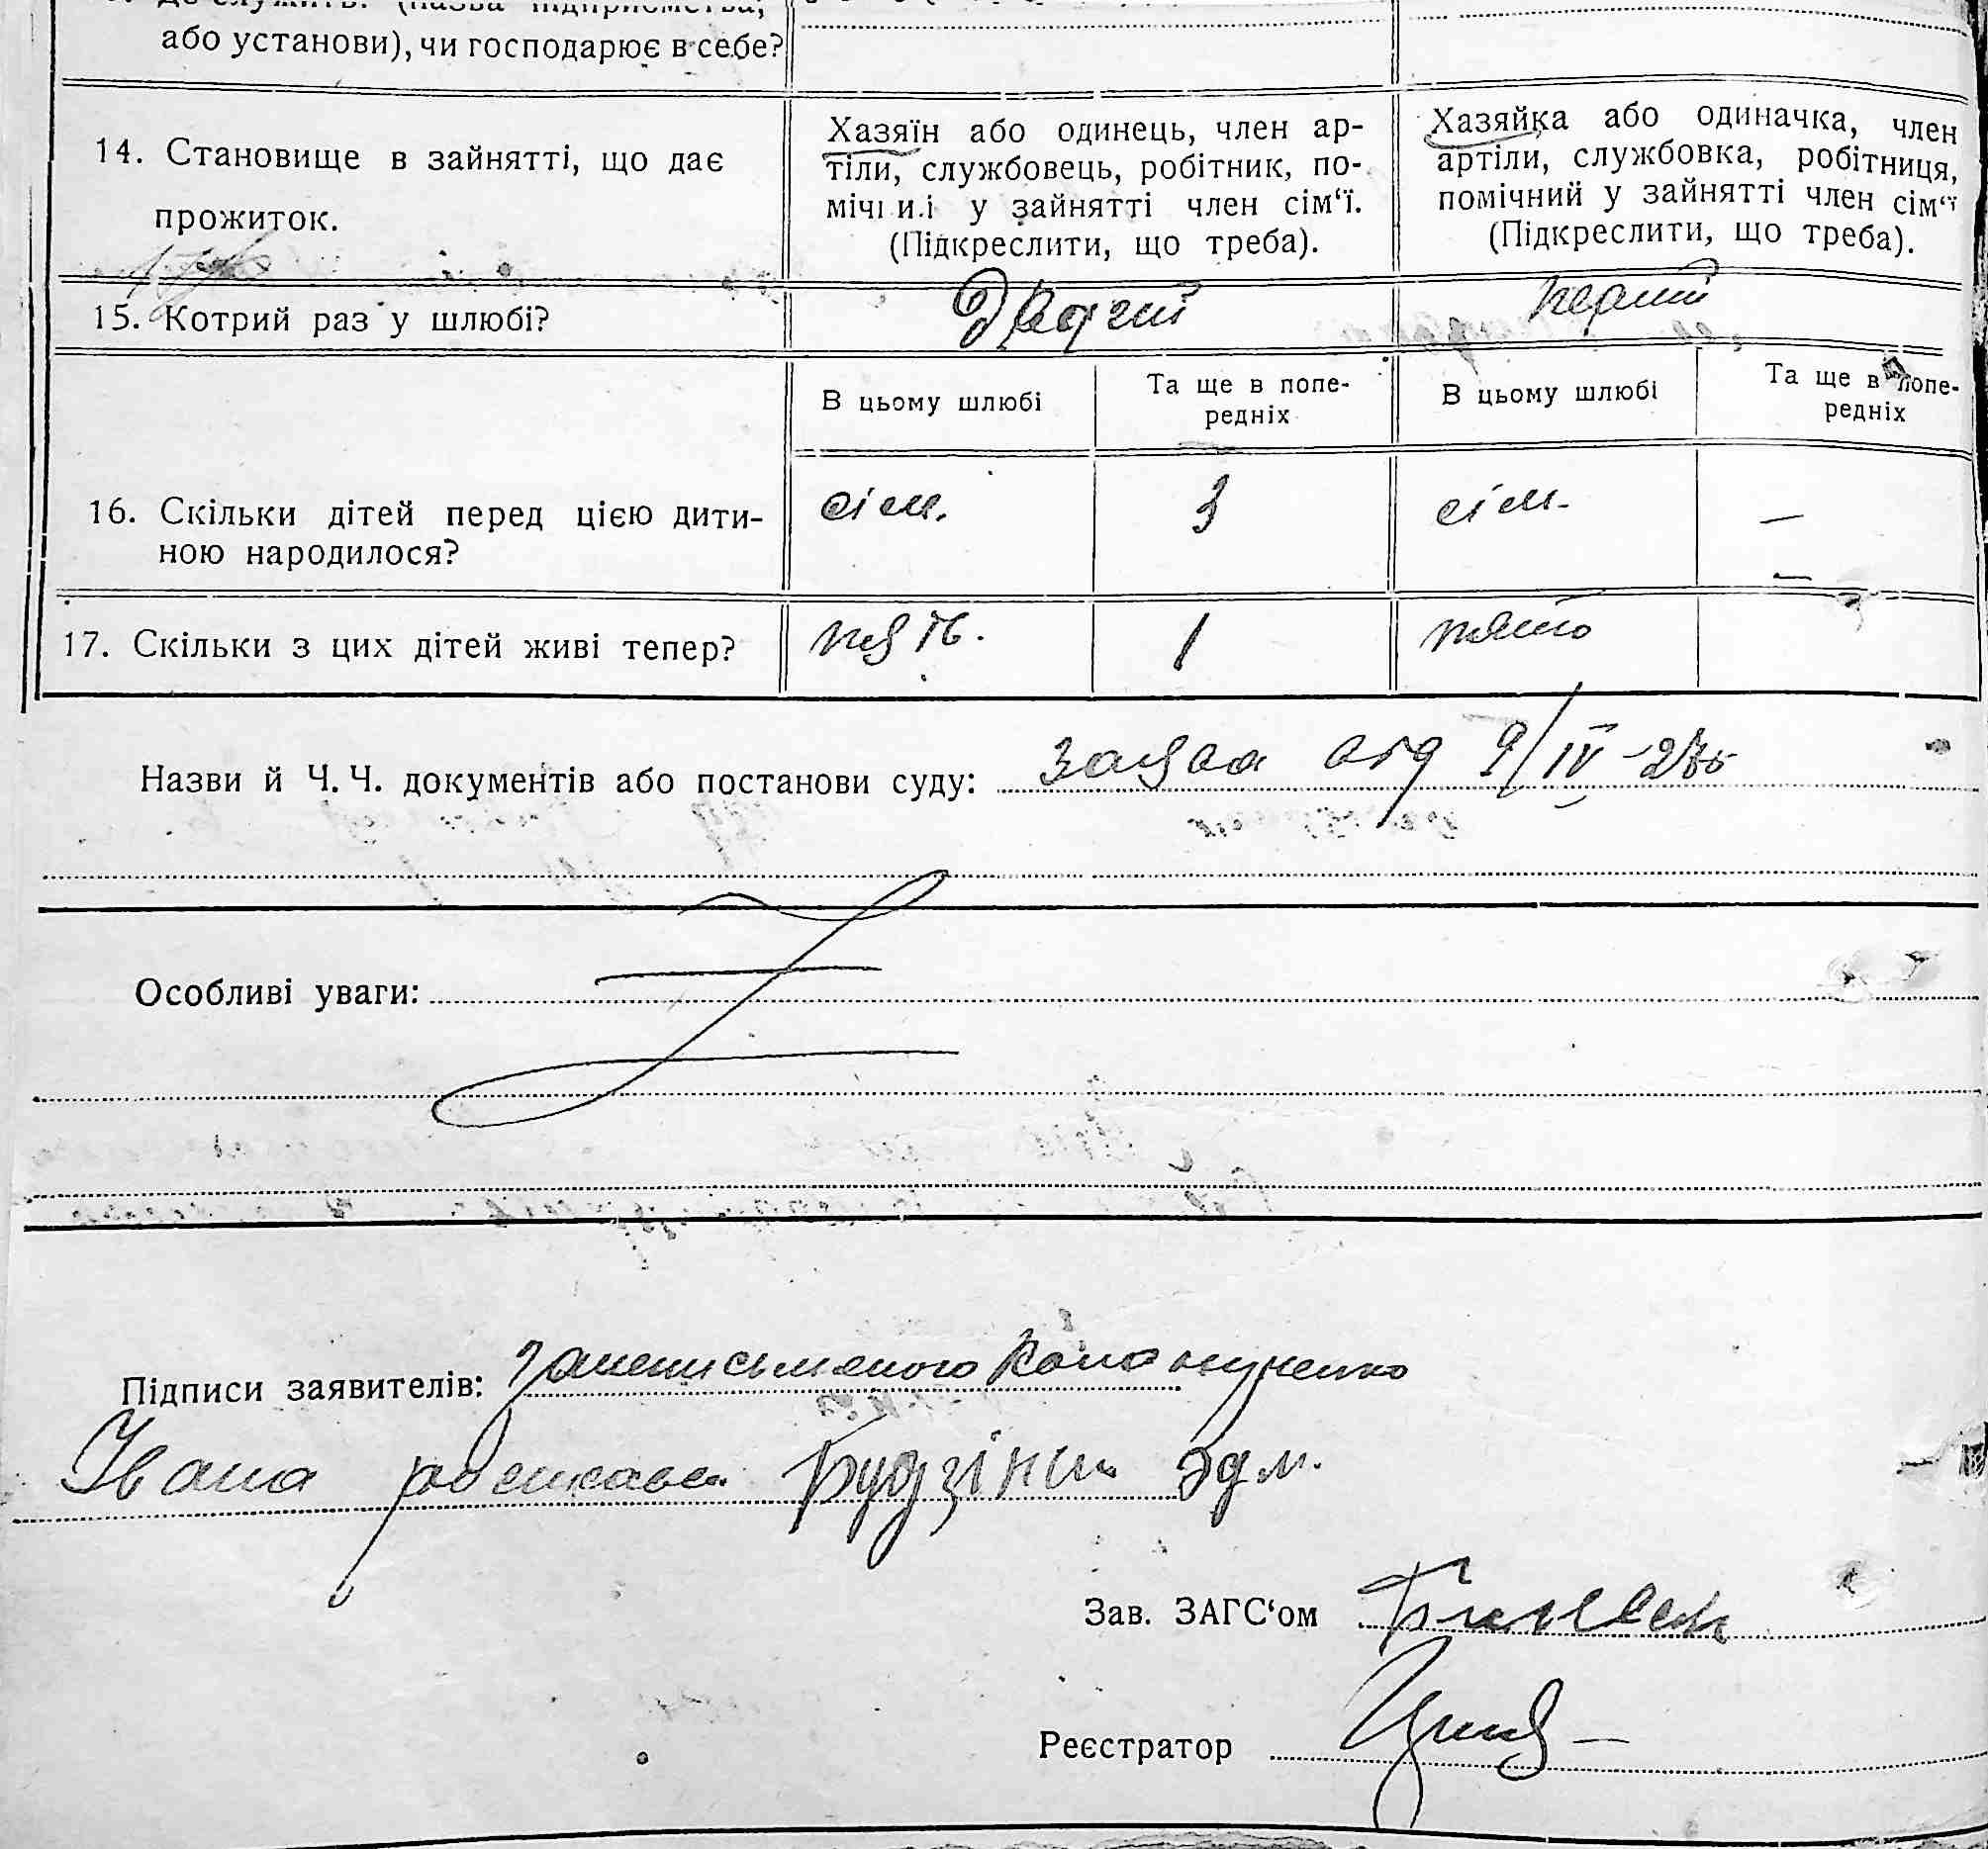 або установи), чи господарює в себе?
14. Становище в зайнятті, що дає
прожиток.
Хазяїн або одинець, член ар-
тіли, службовець, робітник, по-
мічний у зайнятті член сім‘ї.
(Підкреслити, що треба).
Хазяйка або одиначка, член
артіли, службовка, робітниця,
помічний у зайнятті член сім‘ї
(Підкреслити, що треба).
15. Котрий раз у шлюбі?
Другий
первий
В цьому шлюбі
Та ще в попе-
редніх
В цьому шлюбі
Та ще в попе-
редніх
16. Скільки дітей перед цією дити-
ною народилося?
сім.
3
сім.
—
17. Скільки з цих дітей живі тепер?
пять.
1
пять
—
Назви й Ч. Ч. документів або постанови суду: заява від 9/IV-27
Особливі уваги:
Підписи заявителів: за неписьменого
Івана росписався Будзінск Эдм.
Зав. ЗАГС‘ом
Реєстратор